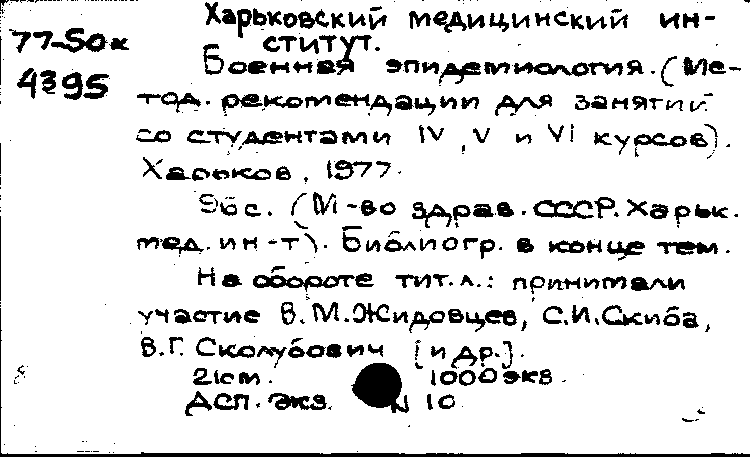 Харьковский медицинский ин-
77-50к
ститут.
4395
Военная эпидемиология. (Ме-
тод. рекомендации для занятий
со студентами IV, V и VI курсов).
Харьков, 1977.
96с. (М-во здрав. СССР. Харьк.
мед. ин-т). Библиогр. в конце тем.
На обороте тит.л.: принимали
участие В.М.Жидовцев, С.И.Скиба,
В.Г. Сколубович [и др.].
21см. 1000 экз.
ДСП. Экз. N 10